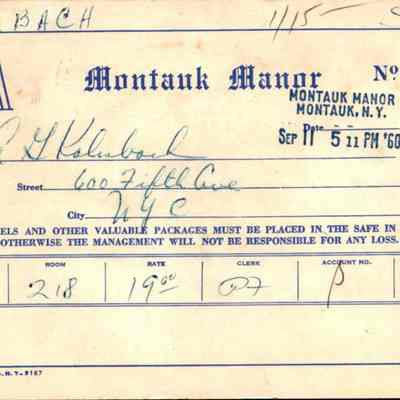 BACH 1/15- S
Montauk Manor Nº
MONTAUK MANOR
MONTAUK, N.Y.
SEP 5 11 PM '60
G Kolmbach
Street 600 Fifth Ave
City NYC
ELS AND OTHER VALUABLE PACKAGES MUST BE PLACED IN THE SAFE IN
OTHERWISE THE MANAGEMENT WILL NOT BE RESPONSIBLE FOR ANY LOSS.
ROOM RATE CLERK ACCOUNT NO.
218 19 00 P
N.Y.-8167